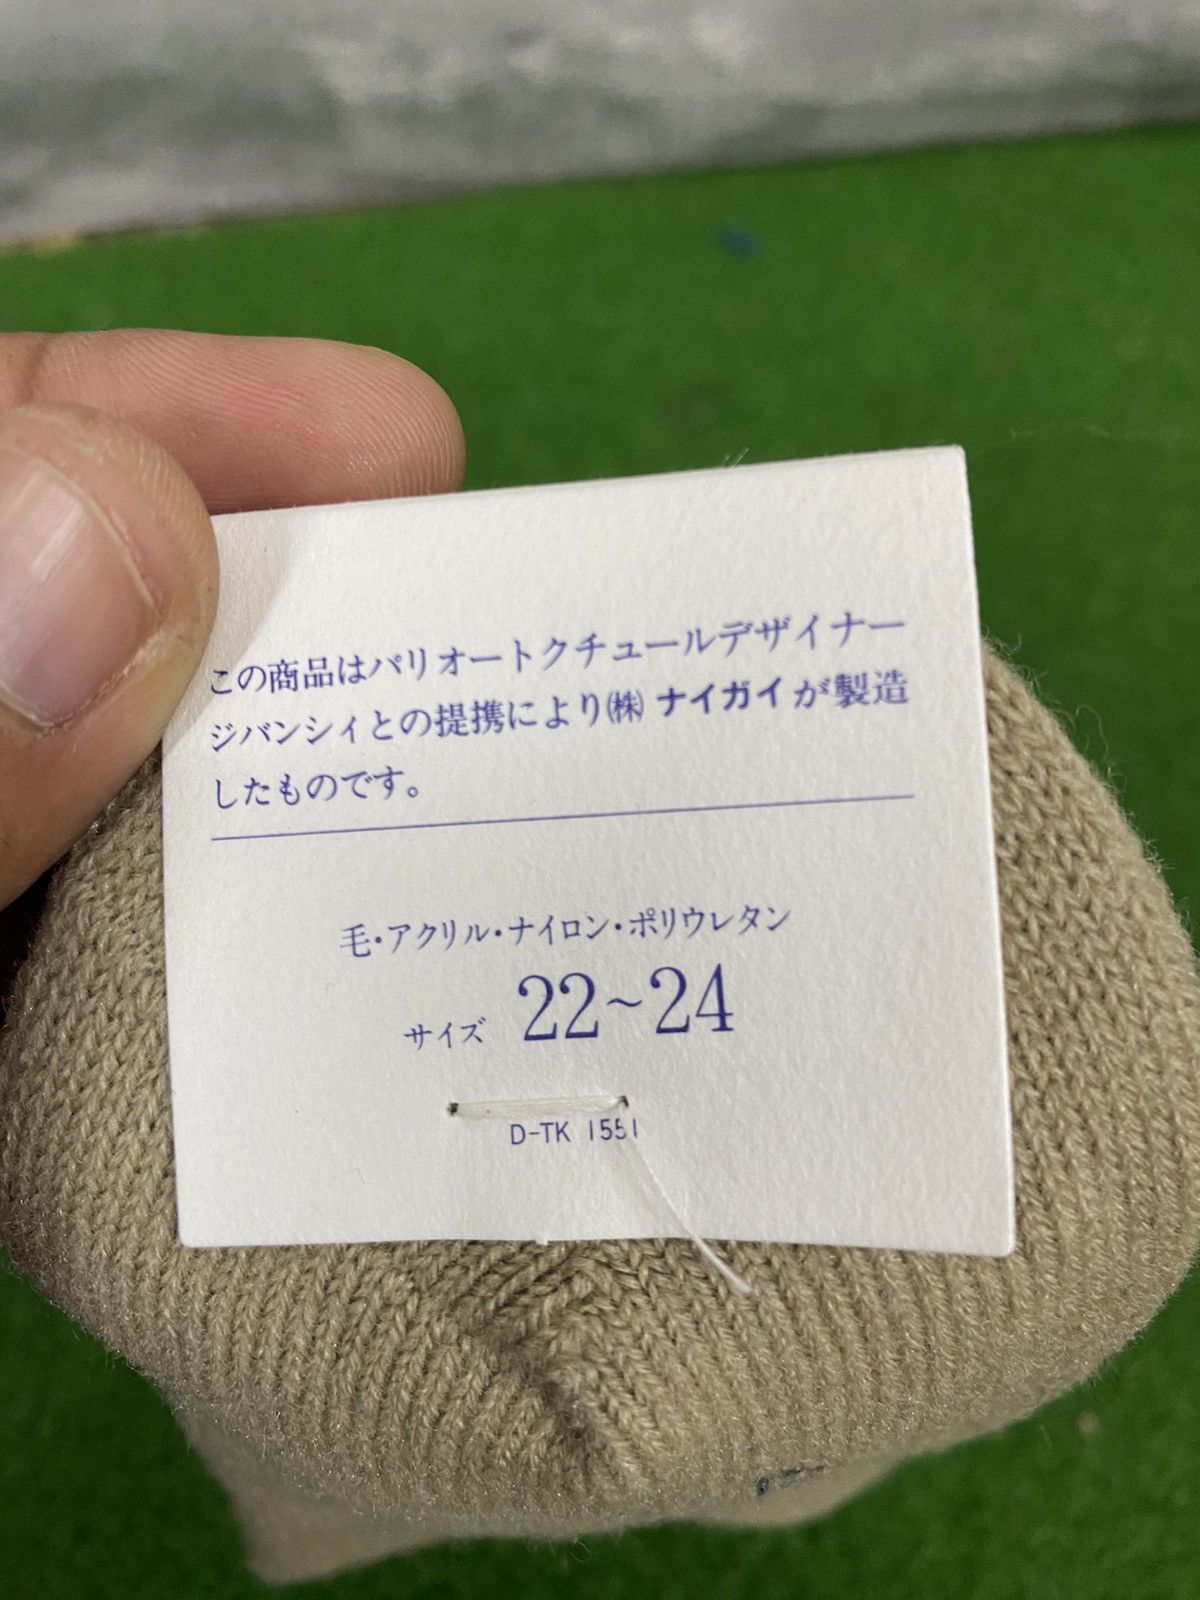 この商品はパリオートクチュールデザイナー
ジバンシィとの提携により㈱ ナイガイが製造
したものです。
毛・アクリル・ナイロン・ポリウレタン
サイズ 22~24
D-TK 1551